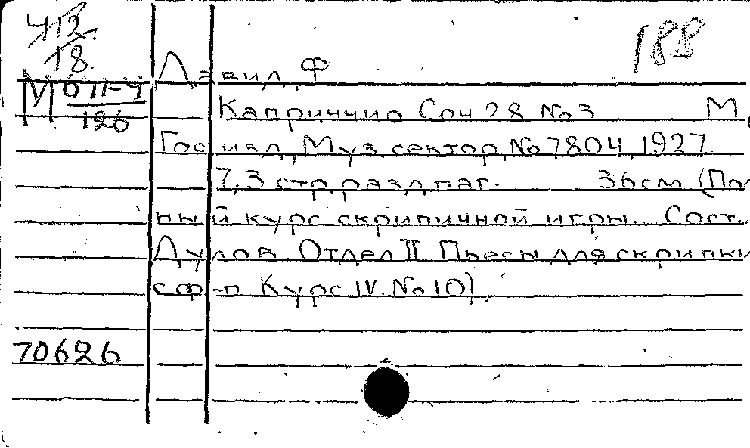 412
18
188
М О 11-4
126
Давид, Ф
Каприччио Соч 28 № 3 М,
Гос изд, Муз сектор, № 7804, 1927
7, 3 стр, разд. паг. 36 см (Пол
ный курс скрипичной игры. Сост.
Дулов Отдел II Пьесы для скрипки
с ф-п Курс IV. № 10)
70626